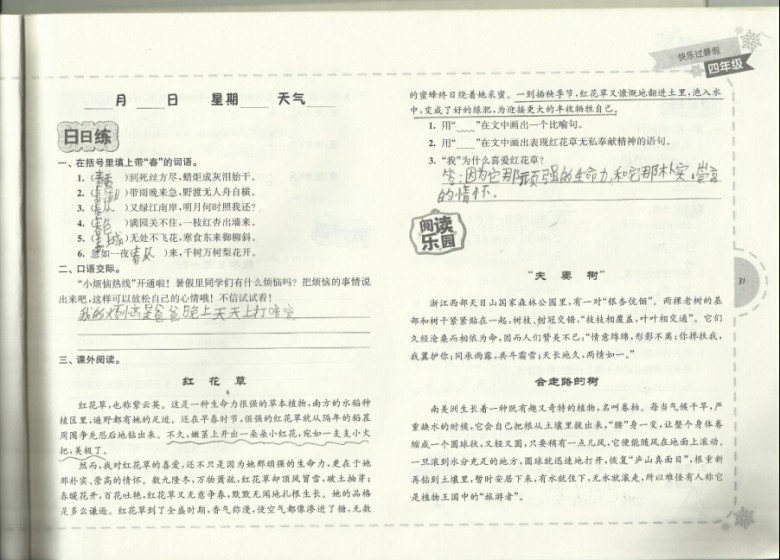 快乐过暑假
四年级
月 日 星期 天气
日日练
一、在括号里填上带“春”的词语。
1.(春蚕)到死丝方尽,蜡炬成灰泪始干。
2.(春潮)带雨晚来急,野渡无人舟自横。
3.(春风)又绿江南岸,明月何时照我还?
4.(春色)满园关不住,一枝红杏出墙来。
5.(春城)无处不飞花,寒食东来御柳斜。
6. 忽如一夜(春风)来,千树万树梨花开。
二、口语交际。
“小烦恼热线”开通啦!暑假里同学们有什么烦恼吗?把烦恼的事情说
出来吧,这样可以放松自己的心情哦!不信试试看!
我的烦恼是爸爸晚上天天上打呼噜
三、课外阅读。
红花草
红花草,也称紫云英。这是一种生命力很强的草本植物,南方的水稻种
植区里,遍野都有她的足迹。还在早春时节,倔强的红花草就从隔年的稻茬
周围争先恐后地钻出来。不久,嫩茎上开出一朵朵小红花,宛如一支支小火
把,美极了。
然而,我对红花草的喜爱,还不只是因为她那顽强的生命力,更在于她
那朴实、崇高的情怀。数九隆冬,万物萧疏,红花草却顶风冒雪,破土抽芽;
春暖花开,百花吐艳,红花草又无意争春,默默无闻地扎根生长。她的品格
是多么谦逊。红花草到了全盛时期,香气弥漫,使空气都像渗进了糖,无数
的蜜蜂终日绕着她采蜜。一到插秧季节,红花草又慷慨地翻进土里,沤入水
中,变成了好的绿肥,为迎接更大的丰收牺牲自己。
1. 用“﹏﹏”在文中画出一个比喻句。
2. 用“——”在文中画出表现红花草无私奉献精神的语句。
3.“我”为什么喜爱红花草?
答:因为它那顽强的生命力,和它那朴实、崇高
的情怀.
阅读
乐园
“夫妻树”
浙江西部天目山国家森林公园里,有一对“银杏伉俪”。两棵老树的基
部和树干紧紧贴在一起,树枝、树冠交错,“枝枝相覆盖,叶叶相交通”。它们
久经沧桑而相依为命,因而人们赞美不已:“情意绵绵,形影不离;你搀扶我,
我翼护你;同承雨露,共斗霜雪;天长地久,两情如一。”
会走路的树
南美洲生长着一种既有趣又奇特的植物,名叫卷柏。每当气候干旱,严
重缺水的时候,它会自己把根从土壤里拔出来,“腰”身一变,让整个身体卷
缩成一个圆球状,又轻又圆,只要稍有一点儿风,它便能随风在地面上滚动。
一旦滚到水分充足的地方,圆球就迅速地打开,恢复“庐山真面目”,根重新
再钻到土壤里,暂时安居下来,有水就住下,无水就滚走,所以难怪有人称它
是植物王国中的“旅游者”。
31